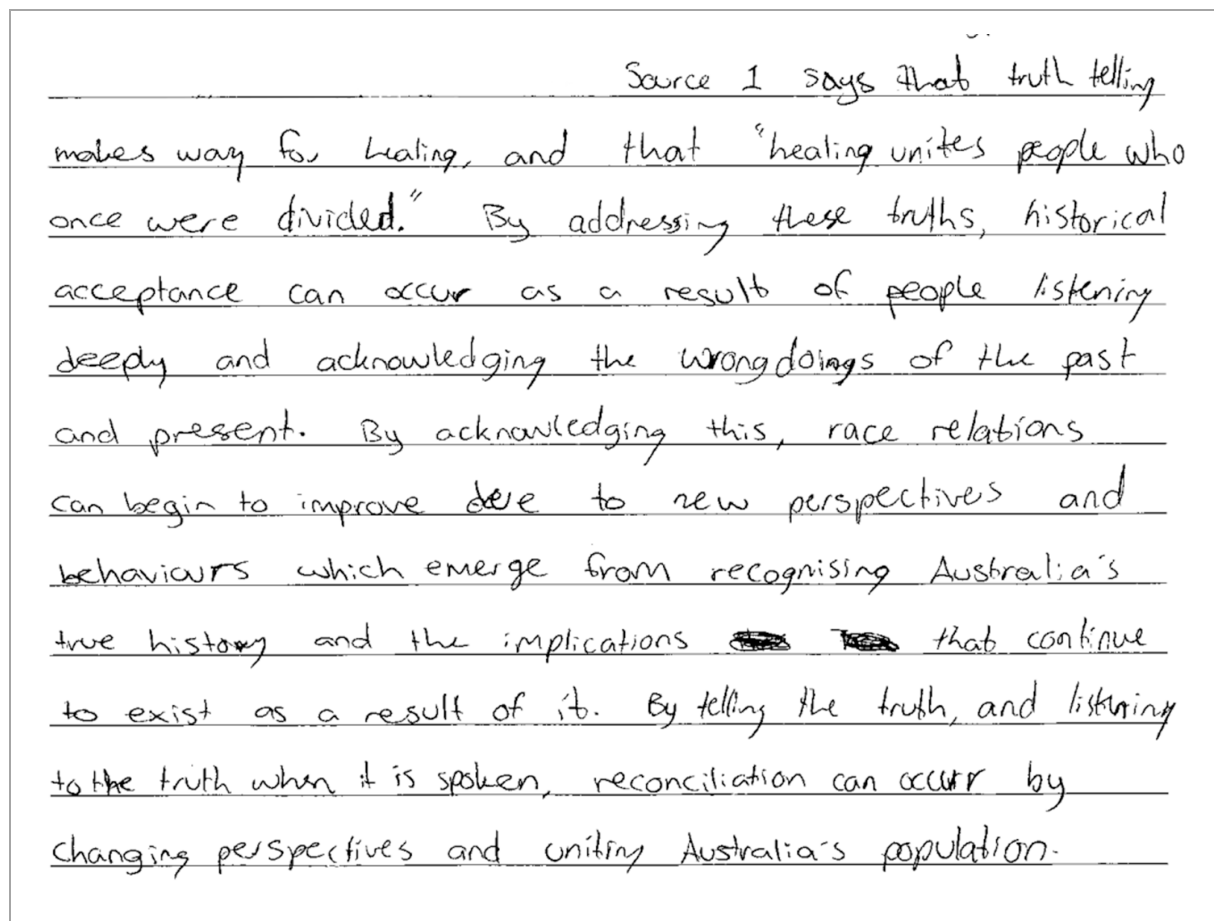 Source 1 says that truth telling
makes way for healing, and that "healing unites people who
once were divided." By addressing these truths, historical
acceptance can occur as a result of people listening
deeply and acknowledging the wrongdoings of the past
and present. By acknowledging this, race relations
can begin to improve due to new perspectives and
behaviours which emerge from recognising Australia's
true history and the implications that continue
to exist as a result of it. By telling the truth, and listening
to the truth when it is spoken, reconciliation can occurr by
changing perspectives and uniting Australia's population.